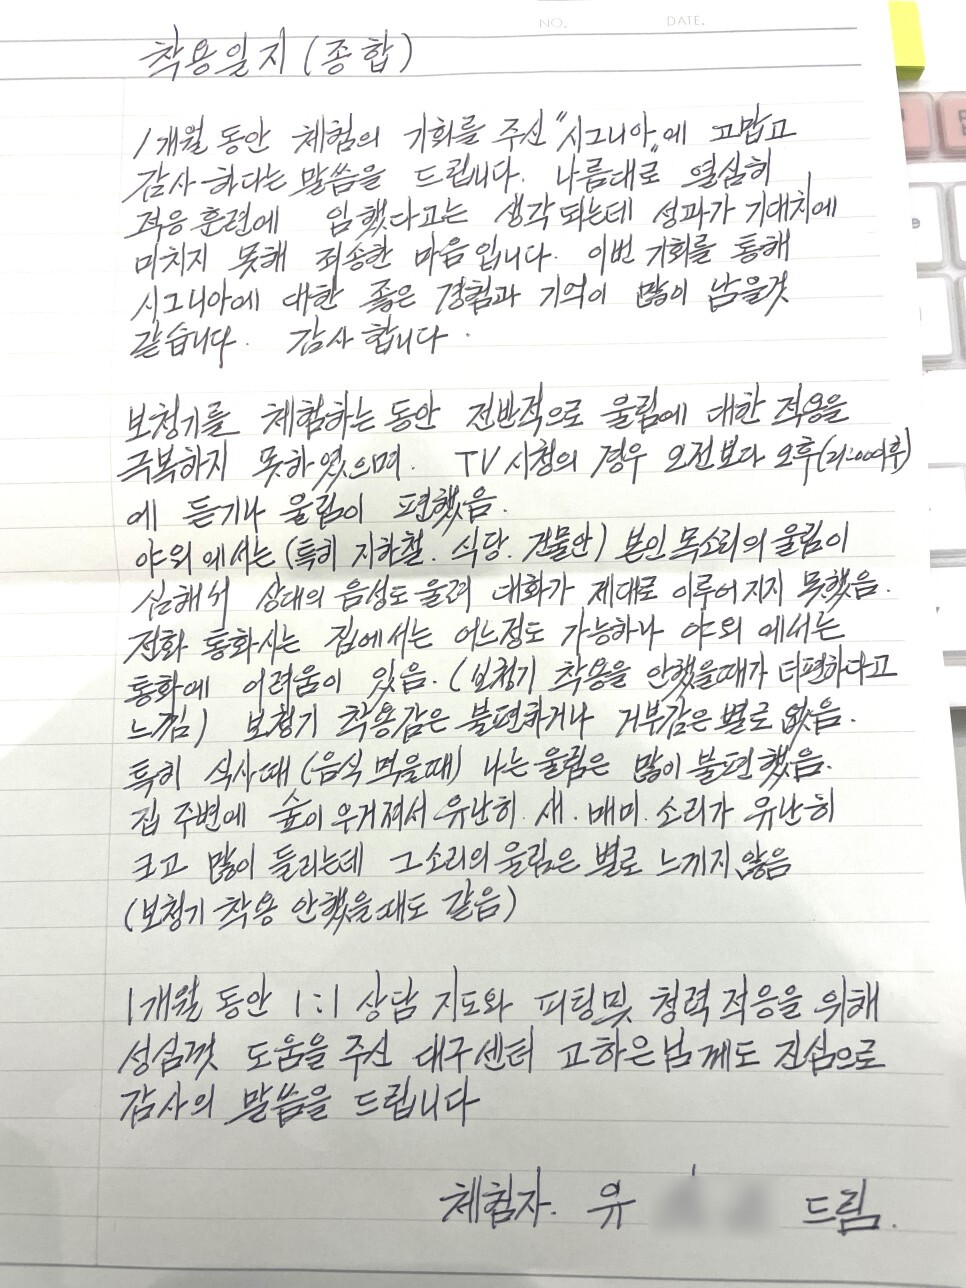 NO. DATE.
착용일지 (종합)
1개월 동안 체험의 기회를 주신 "시그니아"에 고맙고
감사하다는 말씀을 드립니다. 나름대로 열심히
적응훈련에 임했다고는 생각되는데 성과가 기대치에
미치지 못해 죄송한 마음입니다. 이번 기회를 통해
시그니아에 대한 좋은 경험과 기억이 많이 남을것
같습니다. 감사합니다.
보청기를 체험하는 동안 전반적으로 울림에 대한 적응을
극복하지 못하였으며. TV시청의 경우 오전보다 오후(21:00이후)
에 듣기나 울림이 편했음.
야외에서는 (특히 지하철. 식당. 건물안) 본인 목소리의 울림이
심해서 상대의 음성도 울려 대화가 제대로 이루어지지 못했음.
전화 통화시는 집에서는 어느정도 가능하나 야외에서는
통화에 어려움이 있음. (보청기 착용을 안했을때가 더편하다고
느낌) 보청기 착용감은 불편하거나 거부감은 별로 없음.
특히 식사때 (음식 먹을때) 나는 울림은 많이 불편했음.
집 주변에 숲이 우거져서 유난히 새. 매미. 소리가 유난히
크고 많이 들리는데 그소리의 울림은 별로 느끼지 않음
(보청기 착용 안했을때도 같음)
1개월 동안 1:1 상담 지도와 피팅및 청력 적응을 위해
성심껏 도움을 주신 대구센터 고하은님께도 진심으로
감사의 말씀을 드립니다
체험자. 유 드림.